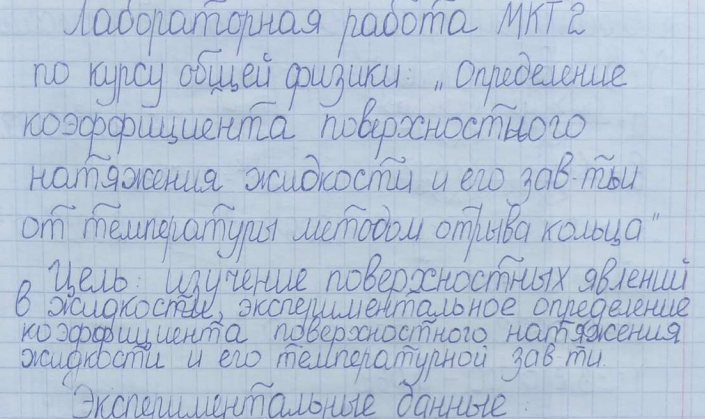 Лабораторная работа МКТ 2
по курсу общей физики: „Определение
коэффициента поверхностного
натяжения жидкости и его зав-тьи
от температуры методом отрыва кольца"
Цель: изучение поверхностных явлений
в жидкостьи, экспериментальное определение
коэффициента поверхностного натяжения
жидкости и его температурной зав-ти.
Экспериментальные данные: